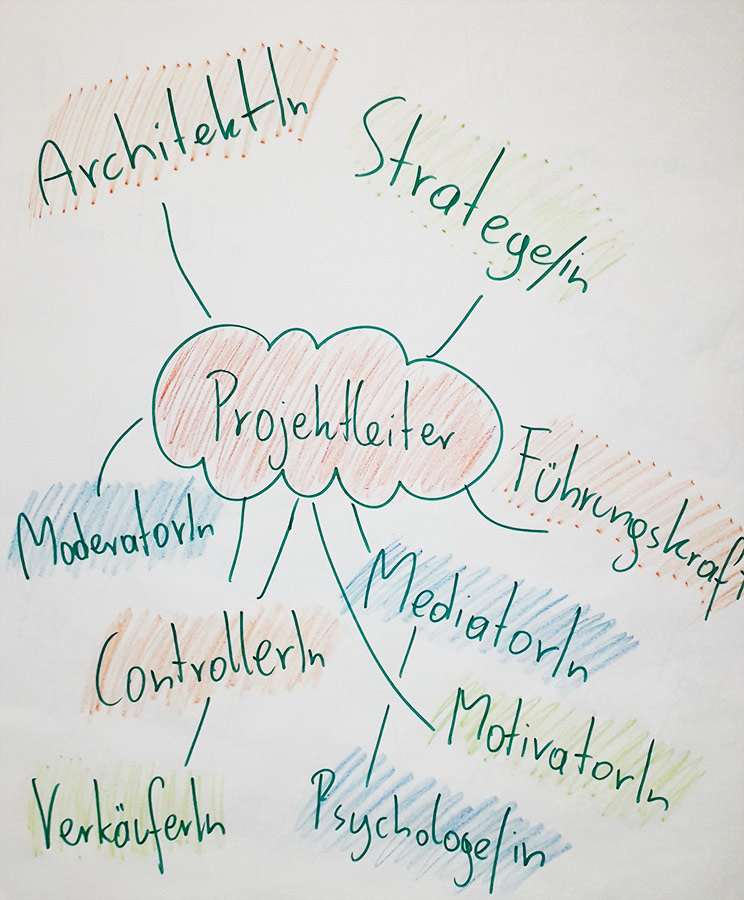 ArchitektIn
Stratege/in
Projektleiter
Führungskraft
ModeratorIn
MediatorIn
ControllerIn
MotivatorIn
VerkäuferIn
Psychologe/in